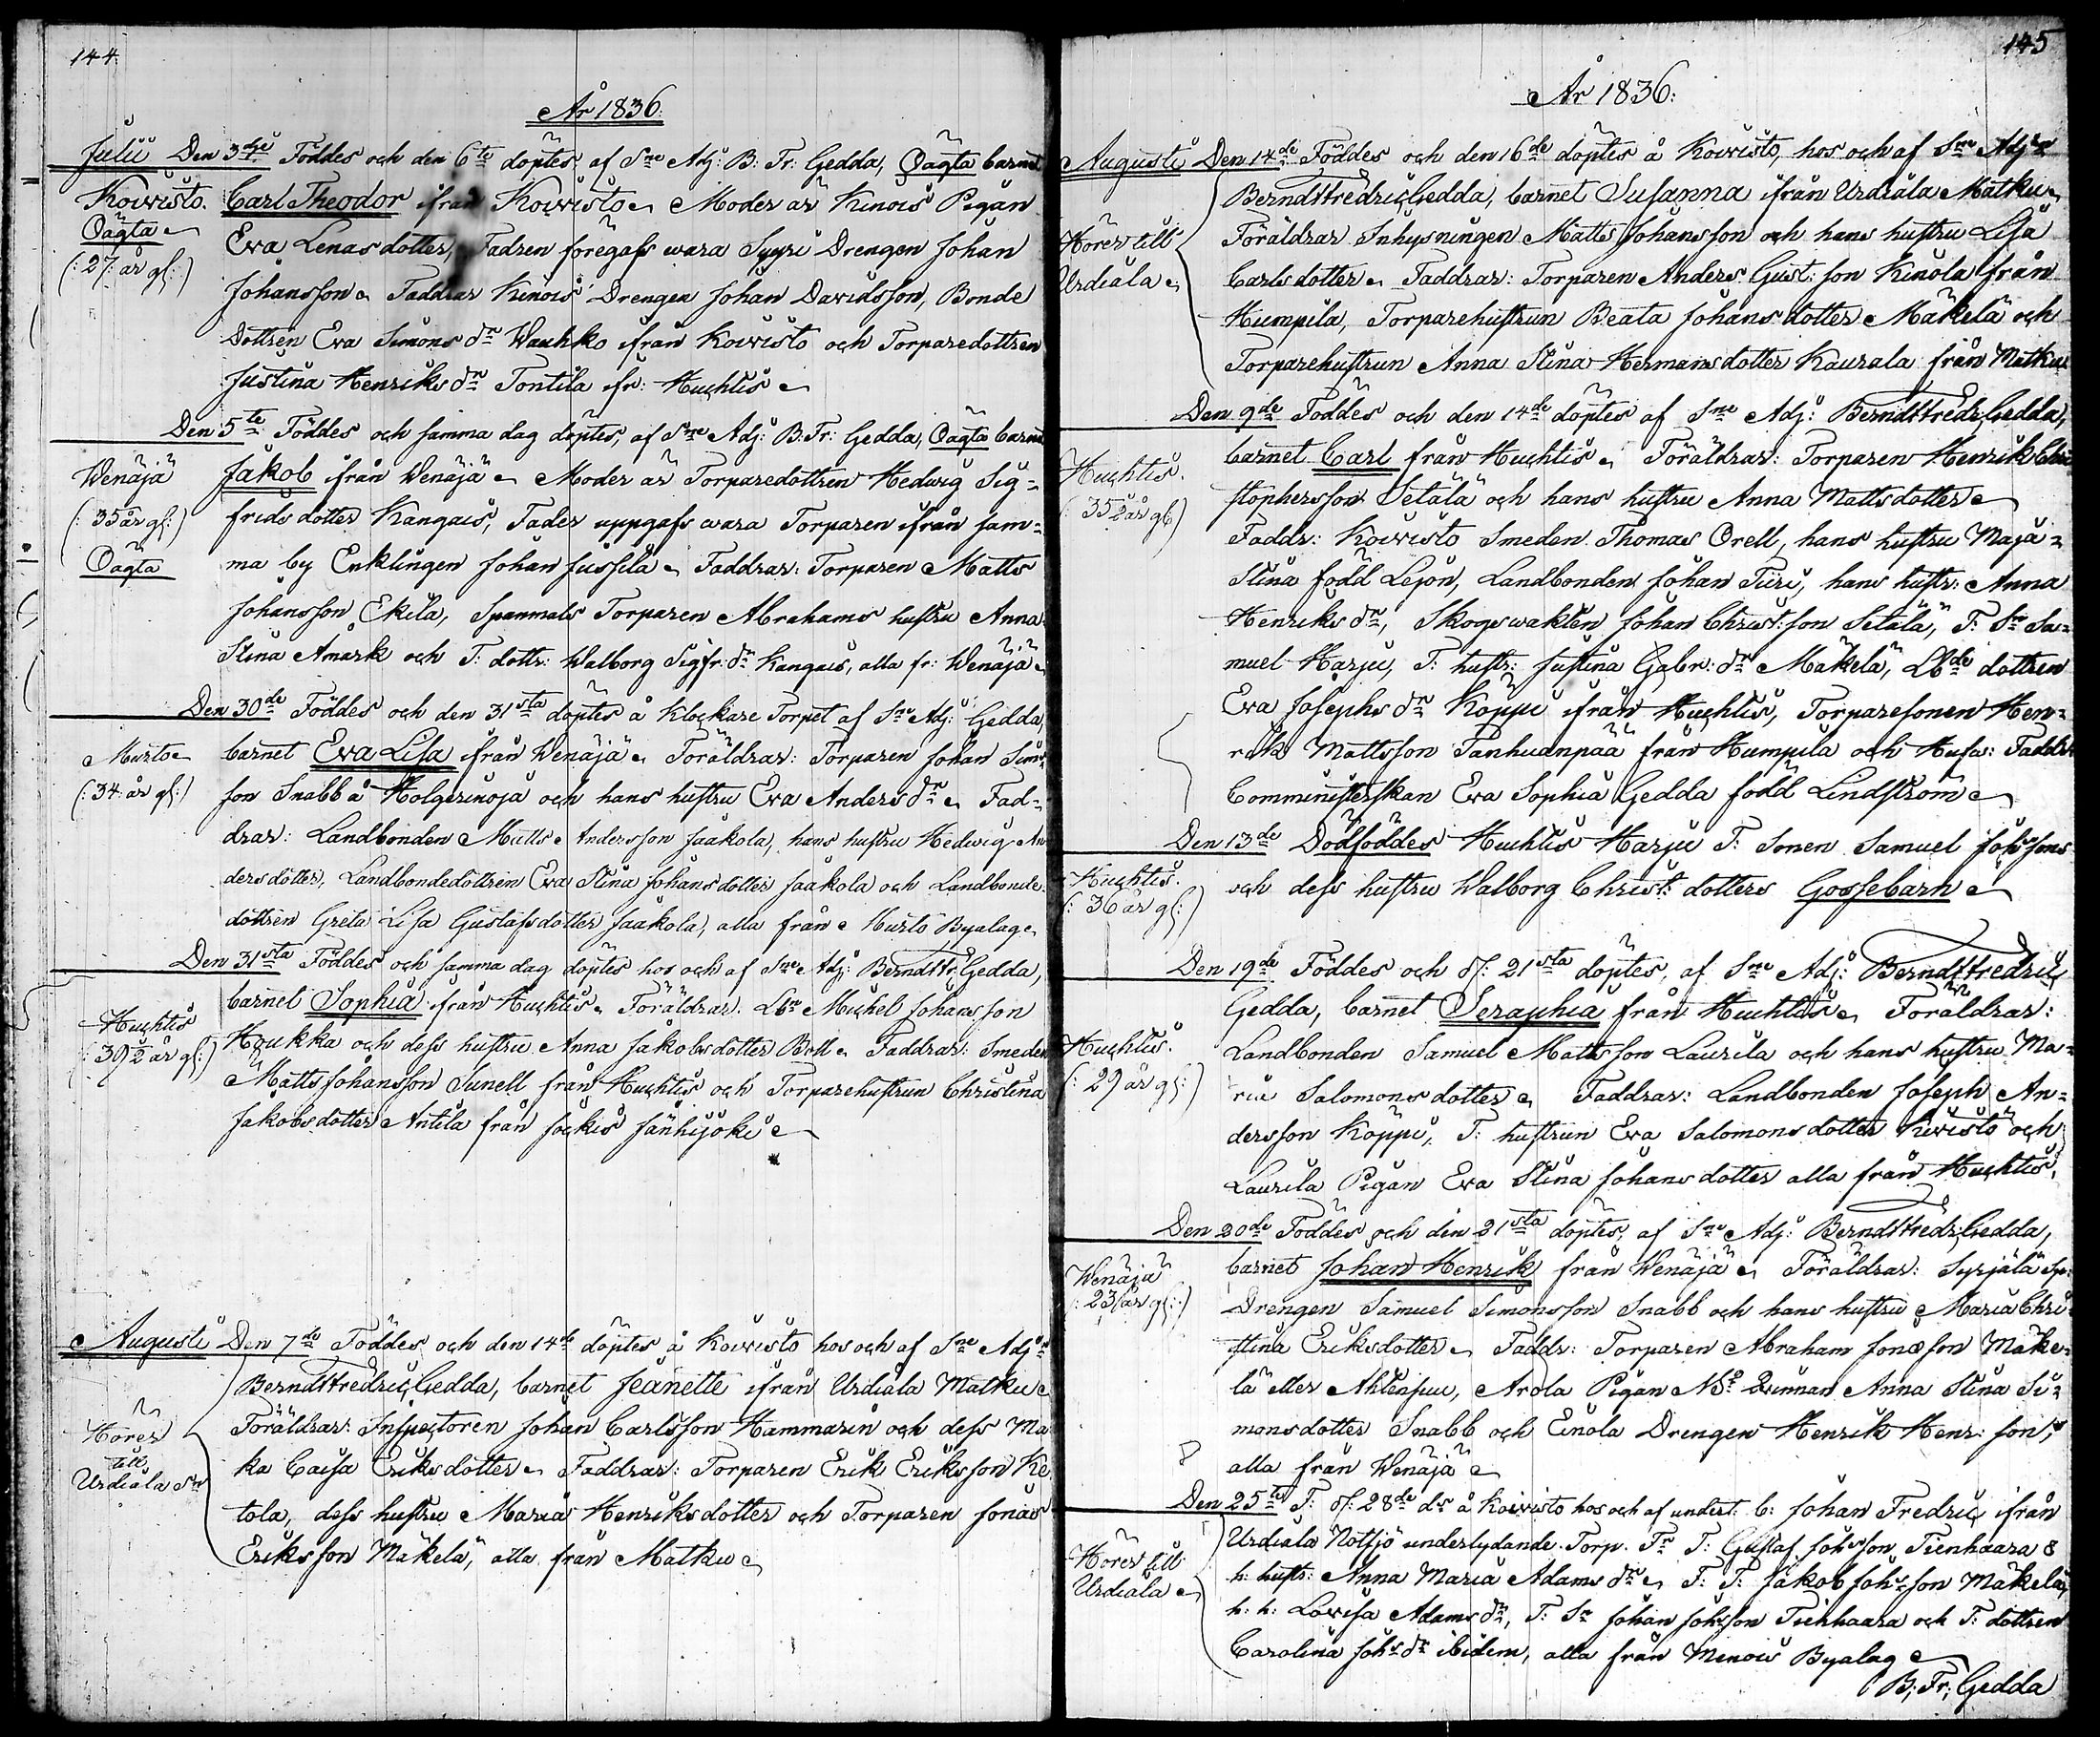 144.
År 1836.
Julii Den 3dje Föddes och den 6te döptes af Sne Adj: B: Fr: Gedda, Oägta barnet
Koivisto. Carl Theodor ifrån Koivisto. Moder är Kinois Pigan
Oägta Eva Lenasdotter, Fadren föregafs wara Syyri Drengen Johan
(: 27 år gl:) Johansson. Faddrar Kinois Drengen Johan Davidsson, Bonde
dottren Eva Simons dr Wauhko ifrån Koivisto och Torparedottren
Justina Henriks dr Tontila ifr: Huchtis
Den 5te Föddes och samma dag döptes, af Sne Adj: B: Fr: Gedda, Oägta barnet
Wenäjä Jakob ifrån Wenäjä. Moder är Torparedottren Hedwig Sig=
(: 35 år gl:) frids dotter Kangais, Fader uppgafs wara Torparen ifrån sam=
Oägta ma by Enklingen Johan Jussila. Faddrar: Torparen Matts
Johansson Ekila, Spanmals Torparen Abrahams hustru Anna
Stina Åmark och T: dottr: Walborg Sigfr: dr Kangais, alla fr: Wenäjä
Den 30de Föddes och den 31sta döptes å Klockare Torpet af Sne Adj: Gedda,
Murto barnet Eva Lisa ifrån Wenäjä. Föräldrar: Torparen Johan Sim:
(: 34 år gl:) son Snabb å Holgerinoja och hans hustru Eva Anders dr. Fad=
drar: Landbonden Matts Andersson Jaakola, hans hustru Hedwig An
dersdotter, Landbondedottren Eva Stina Johansdotter Jaakola och Landbonde
dottren Greta Lisa Gustafsdotter Jaakola, alla från Murto Byalag.
Den 31sta Föddes och samma dag döptes hos och af Sne Adj: Berndt Fr: Gedda,
barnet Sophia ifrån Huchtis. Föräldrar: Lbn Mickel Johansson
Huchtis Houkka och dess hustru Anna Jakobsdotter Boll. Faddrar: Smeden
(: 39½ år gl:) Matts Johansson Sunell från Huchtis och Torparehustrun Christina
Jakobsdotter Antila från Jockis Jänhijoki
Augusti Den 7de Föddes och den 14de döptes å Koivisto hos och af Sne Adjn
Berndt Fredric Gedda, barnet Jeanette ifrån Urdiala Matku
Hörer Föräldrar: Inspectoren Johan Carlsson Hammarin och dess Ma
till ka Caisa Eriksdotter. Faddrar: Torparen Erik Eriksson Ke
Urdiala Sn tola, dess hustru Maria Henriksdotter och Torparen Jonas
Eriksson Mäkelä, alla från Matku
145
År 1836.
Augusti Den 14de Föddes och den 16de döptes å Koivisto, hos och af Sne Adjn
Berndt Fredric Gedda, barnet Susanna ifrån Urdiala Matku.
Hörer till Föräldrar Inhysningen Matts Johansson och hans hustru Lisa
Urdiala Carlsdotter. Faddrar: Torparen Anders Gust: son Kinola från
Humpila, Torparehustrun Beata Johansdotter Mäkelä och
Torparehustrun Anna Stina Hermansdotter Kaurala från Matku
Den 9de Föddes och den 14de döptes af Sne Adj: Berndt Fredr: Gedda,
Huchtis. barnet Carl från Huchtis. Föräldrar: Torparen Henrik Chri
(: 35½ år gl:) stophersson Setälä och hans hustru Anna Mattsdotter
Faddr: Koivisto Smeden Thomas Orell, hans hustru Maja=
Stina född Lejon, Landbonden Johan Tiiri, hans hustr: Anna
Henriks dr, Skogswakten Johan Christ: son Setälä, T: Sn Sa=
muel Harju, T: hustr: Justina Gabr: dr Mäkelä, Lbde dottren
Eva Josephs dr Köppi ifrån Huchtis, Torparesonen Hen=
rik Mattsson Tanhuanpää från Humpila och Hufv: Faddr
Comministerskan Eva Sophia Gedda född Lindström
Den 13de Dödföddes Huchtis Harju T: Sonen Samuel Johssons
Huchtis. och dess hustru Walborg Christ: dotters Gossebarn
(: 36 år gl:)
Den 19de Föddes och d: 21sta döptes, af Sne Adj: Berndt Fredric
Gedda, barnet Seraphia från Huchtis. Föräldrar:
Huchtis. Landbonden Samuel Mattsson Laurila och hans hustru Ma=
(: 29 år gl:) ria Salomonsdotter. Faddrar: Landbonden Joseph An=
dersson Köppi, T: hustrun Eva Salomonsdotter Kivistö och
Laurila Pigan Eva Stina Johansdotter alla från Huchtis.
Den 20de Föddes och den 21sta döptes, af Sne Adj: Berndt Fredr: Gedda,
Wenäjä barnet Johan Henrik från Wenäjä. Föräldrar: Syrjälä Sp:
(: 23 år gl:) Drengen Samuel Simonsson Snabb och hans hustru Maria Chri
stina Eriksdotter. Faddr: Torparen Abraham Jonæson Mäke=
lä eller Ahlensuu, Arola Pigan Qvinnan Anna Stina Si=
monsdotter Snabb och Einola Drengen Henrik Henr: son,
alla från Wenäjä
Den 25te F: d: 28de ds å Koivisto hos och af undert. b: Johan Fredric ifrån
Urdiala Notsjö underlydande Torp. Fr T: Gustaf Johsson Tienhaara &
Hörer till h: hustr: Anna Maria Adams dr. F: T: Jakob Johsson Mäkelä,
Urdiala h: h: Lovisa Adams dr, T: Sn Johan Johsson Tienhaara och T: dottren
Carolina Johs dr ibidem, alla från Minois Byalag
B: Fr: Gedda